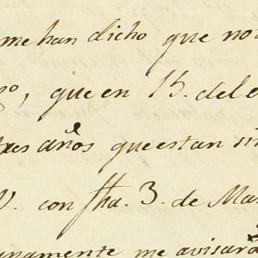 me han dicho que no
go, que en 15. del e
tres años que estan sin
V. con fha. 3. de Ma
unamente me avisara